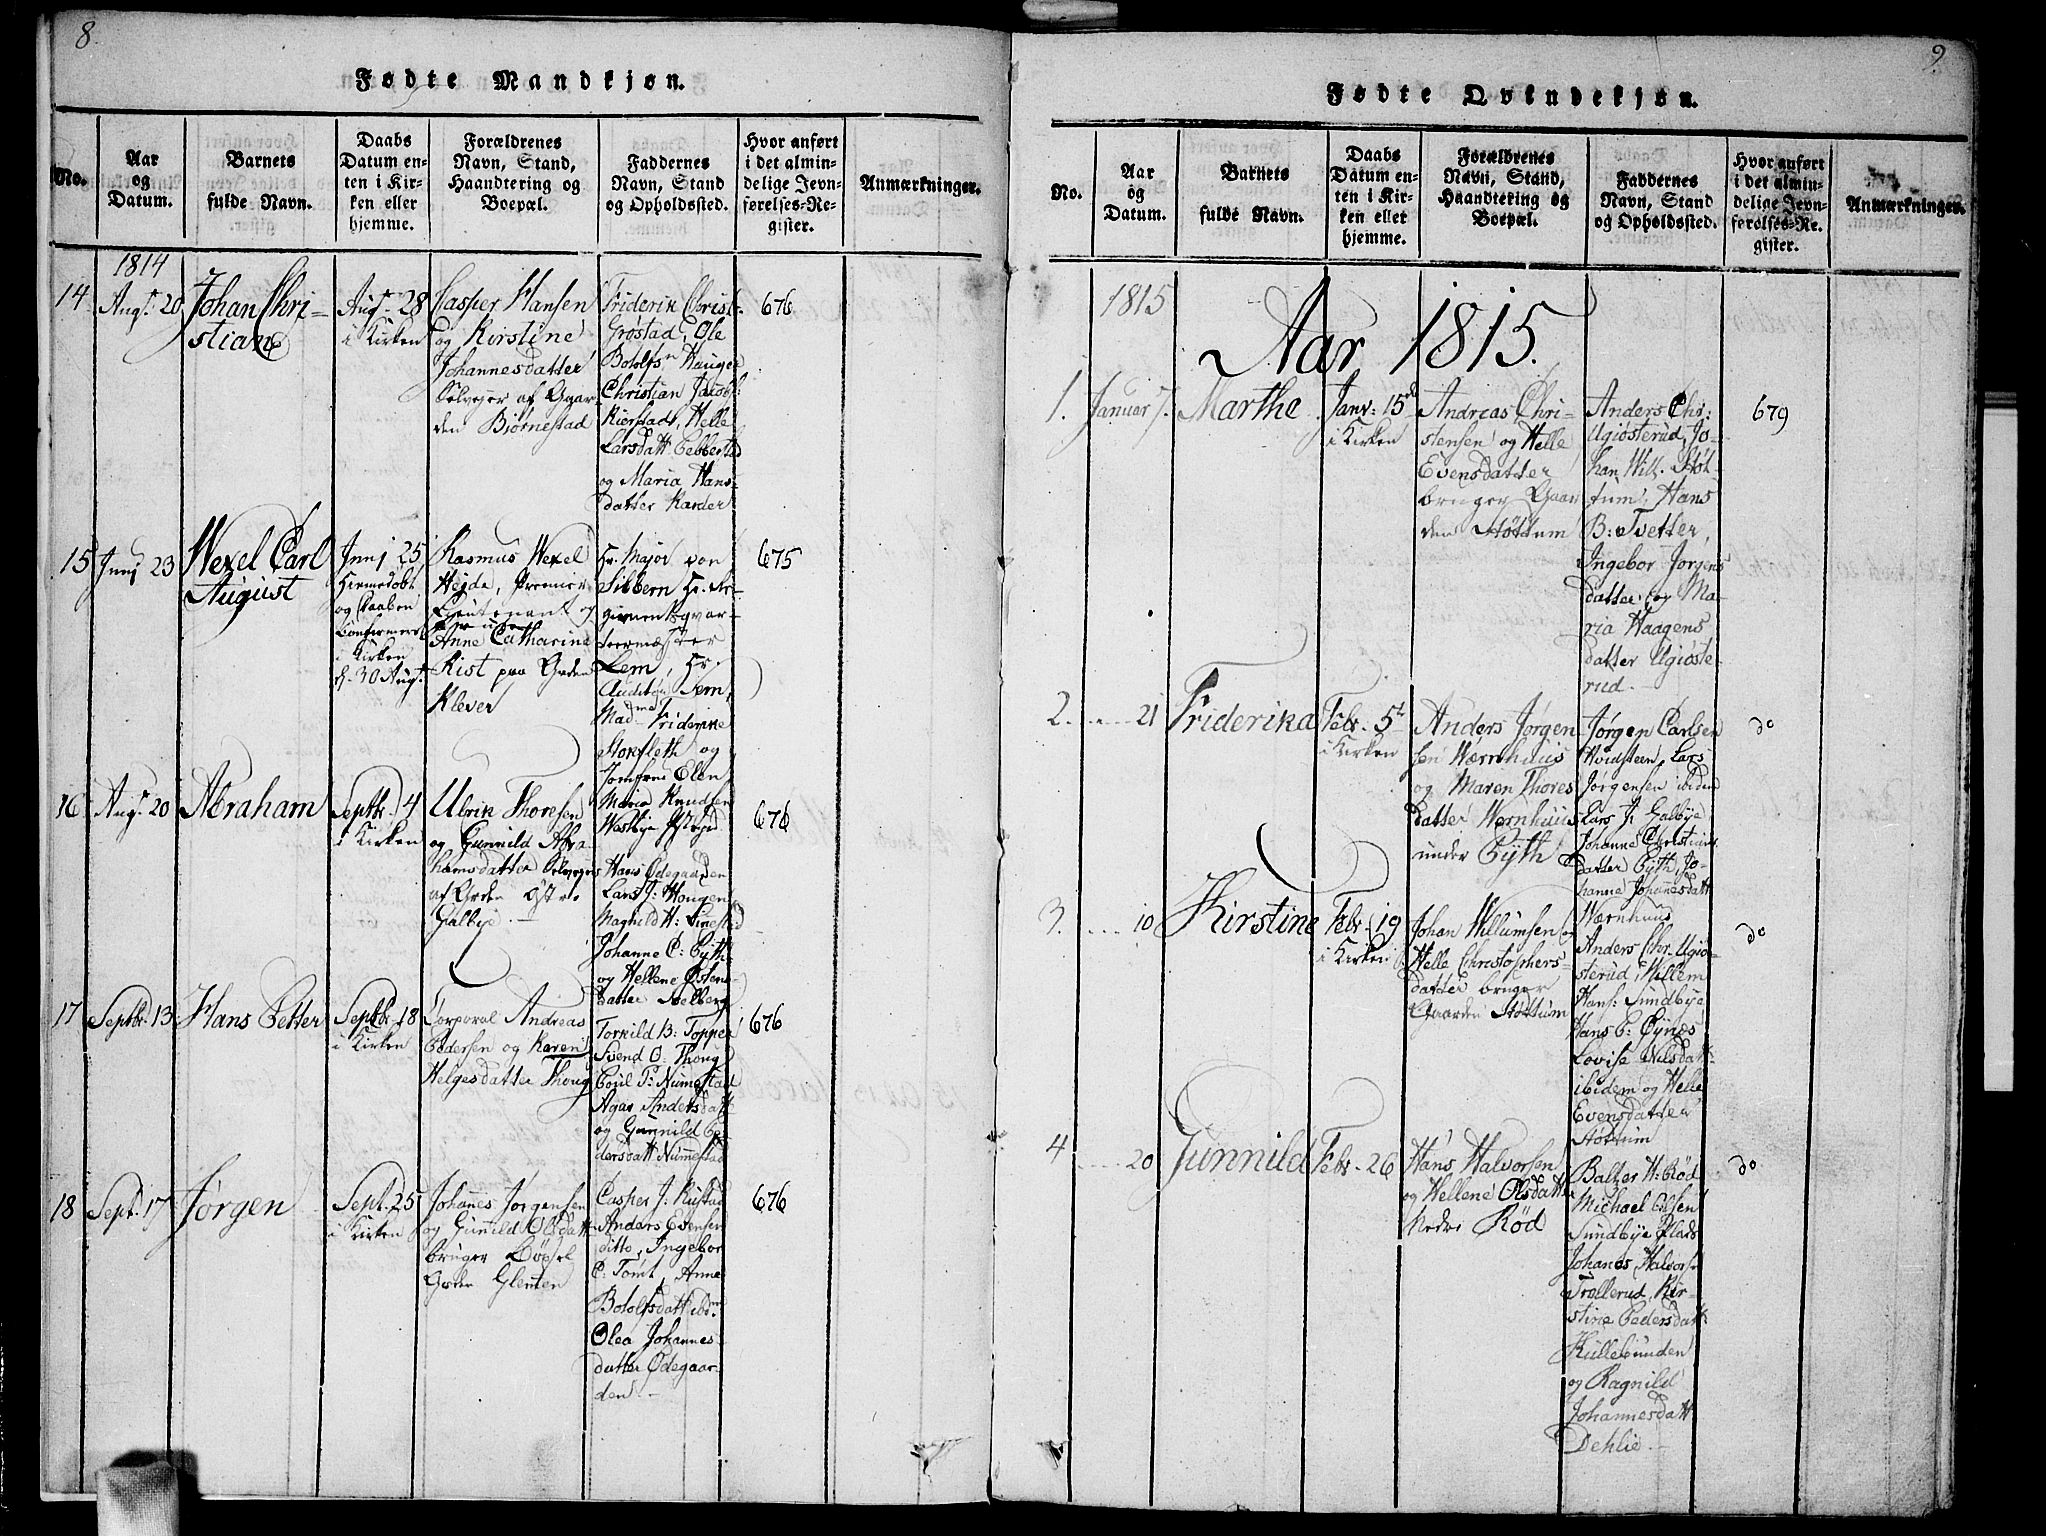 8.
Fødte Mandkjøn.
No.
Aar
og
Datum.
Barnets
fulde Navn.
Daabs
Datum en-
ten i Kir-
ken eller
hjemme.
Forældrenes
Navn, Stand,
Haandtering og
Boepæl.
Faddernes
Navn, Stand
og Opholdssted.
Hvor anført
i det almin-
delige Jevn-
førelses-Re-
gister.
Anmærkninger.
1814
14
Augst 20
Johan Chri-
stian
Augst 28
i Kirken
Casper Hansen
og Kirstine
Johannesdatter
Selvejer af Gaar-
den Biørnestad
Friderik Christ.
Grøstad, Ole
Bolofsn Haugen
Christian Jacobs:
Kierstad, Helle
Larsdatt.
og Maria Hans-
datter Karder
676
15
Junj 23
Wexel Carl
August
Junj 25
Hiemedøbt
og Daaben
Confirmeret
i Kirken
d. 30 Augt.
Rasmus Wexel
Hejde, Premier
Lieutenant og
Anne Catharine
Rist paa Gaden
Klever
Hr. Major von
Sibbern Hr. Re-
gimentsqvar-
teermester
Lem, Hr.
Auditør Sem,
Madme Friderike
Stokfleth og
Jomfrue Elen
Maria Knudsen
Westbye Præstegd
675
16
Augst 20
Abraham
Septbr. 4
i Kirken
Ulrik Thoresen
og Gunnild Abra-
hamsdatter Selvejer
af Garden Østre
Galbye.
Hans Ødegaarden
Lars J: Hougen
Magnild H:
Johanne P: Pyth
og Hellene Østens-
datter Solberg
676
17
Septbr. 13
Hans Petter
Septbr. 18
i Kirken
Corporal Andreas
Pedersen og Karen
Helgesdatter Thoug
Torkild B: Topper
Svend O: Thoug
Poul P: Numestad
Agar Andersdatt
og Gunnild Pe-
dersdatt Nummestad
676
18
Septb. 17
Jørgen
Sept. 25
i Kirken
Johannes Jørgensen
og Gunnild Olsdatt
bruger
Garden Glenten
Casper J: Rustad
Anders Evensen
ditto, Ingebor
P: Tomt, Anne
Bolofsdatt ibdm
Olea Johannes-
datter Ødegaar-
den.
676
9.
Fødte Qvindekjøn.
No.
Aar
og
Datum.
Barnets
fulde Navn.
Daabs
Datum en-
ten i Kir-
ken eller
hjemme.
Forældrenes
Navn, Stand,
Haandtering og
Boepæl.
Faddernes
Navn, Stand
og Opholdssted.
Hvor anført
i det almin-
delige Jevn-
førelses-Re-
gister.
Anmærkninger.
1815
Aar 1815.
1.
Januar 7.
Marthe
Janr: 15de
i Kirken
Andreas Chri-
stensen og Helle
Evensdatter
bruger Gaar
den Støttum
Anders Chr:
Ugiøsterud, Jo-
han Will. Støt-
tum, Hans
B: Tvetter,
Ingebor Jørgens
datter, og Ma-
ria Haagens
datter Ugiøste-
rud.
679
2.
21
Friderika
Febr. 5t
i Kirken
Anders Jørgen
sen Wærnhuus
og Maren Thores
datter Wernhuus
under Pyth
Jørgen Carlsen
Hvidsteen, Lars
Jørgensen ibiden
Lars J: Galbye
Johanne Christians
datter Pyth, Jo-
hanne Johannesdatt
Wærnhuus
do
3.
10
Kirstine
Febr. 19
i Kirken
Johan Willumsen og
Helle Christophers-
datter bruger
Gaarden Støttum
Anders Chr. Ugiø-
sterud, Willem
Hans: Sundbye
Hans C: Pynes
Lovise Nilsdatt:
ibidem og Helle
Evensdatter
Støttum
do
4
20
Gunnild
Febr. 26
Hans Halvorsen
og Hellene Olsdatt
Nedre Rød
Balzer H: Rød
Michael Olsen
Sundbye Plads
Johanes Halvors:
Trollerud, Kir-
stine Pedersdatt:
Kullebunden
og Ragnild
Johannesdatt
Dehlie.
do